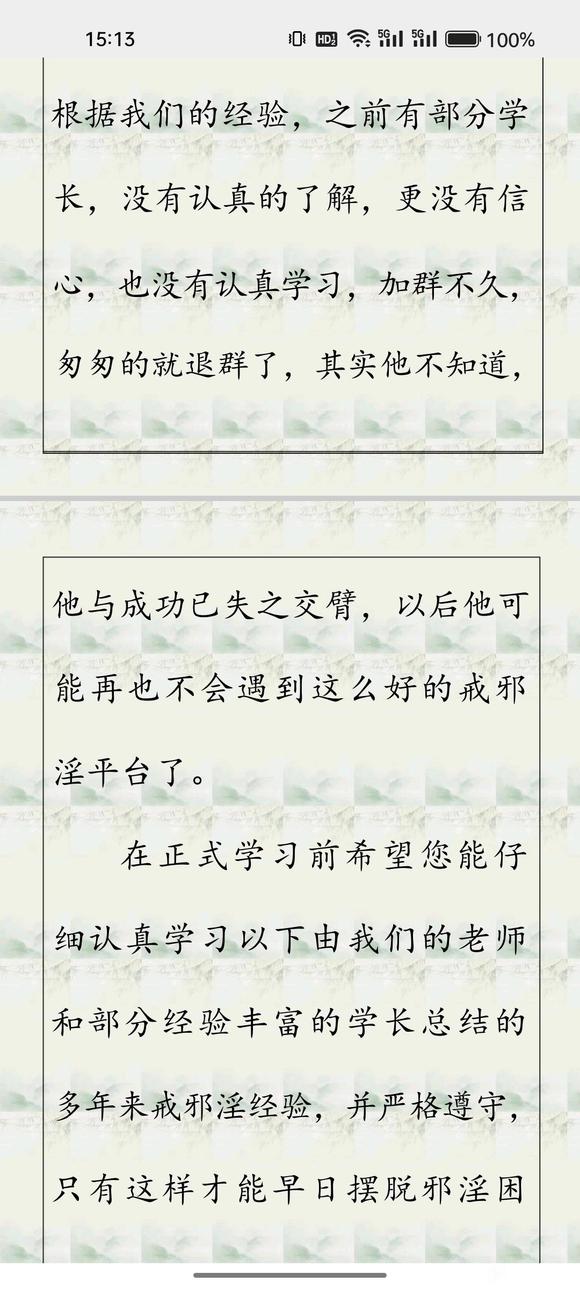 15:13 HD2 5G 5G 100%
根据我们的经验，之前有部分学
长，没有认真的了解，更没有信
心，也没有认真学习，加群不久，
匆匆的就退群了，其实他不知道，
他与成功已失之交臂，以后他可
能再也不会遇到这么好的戒邪
淫平台了。
在正式学习前希望您能仔
细认真学习以下由我们的老师
和部分经验丰富的学长总结的
多年来戒邪淫经验，并严格遵守，
只有这样才能早日摆脱邪淫困